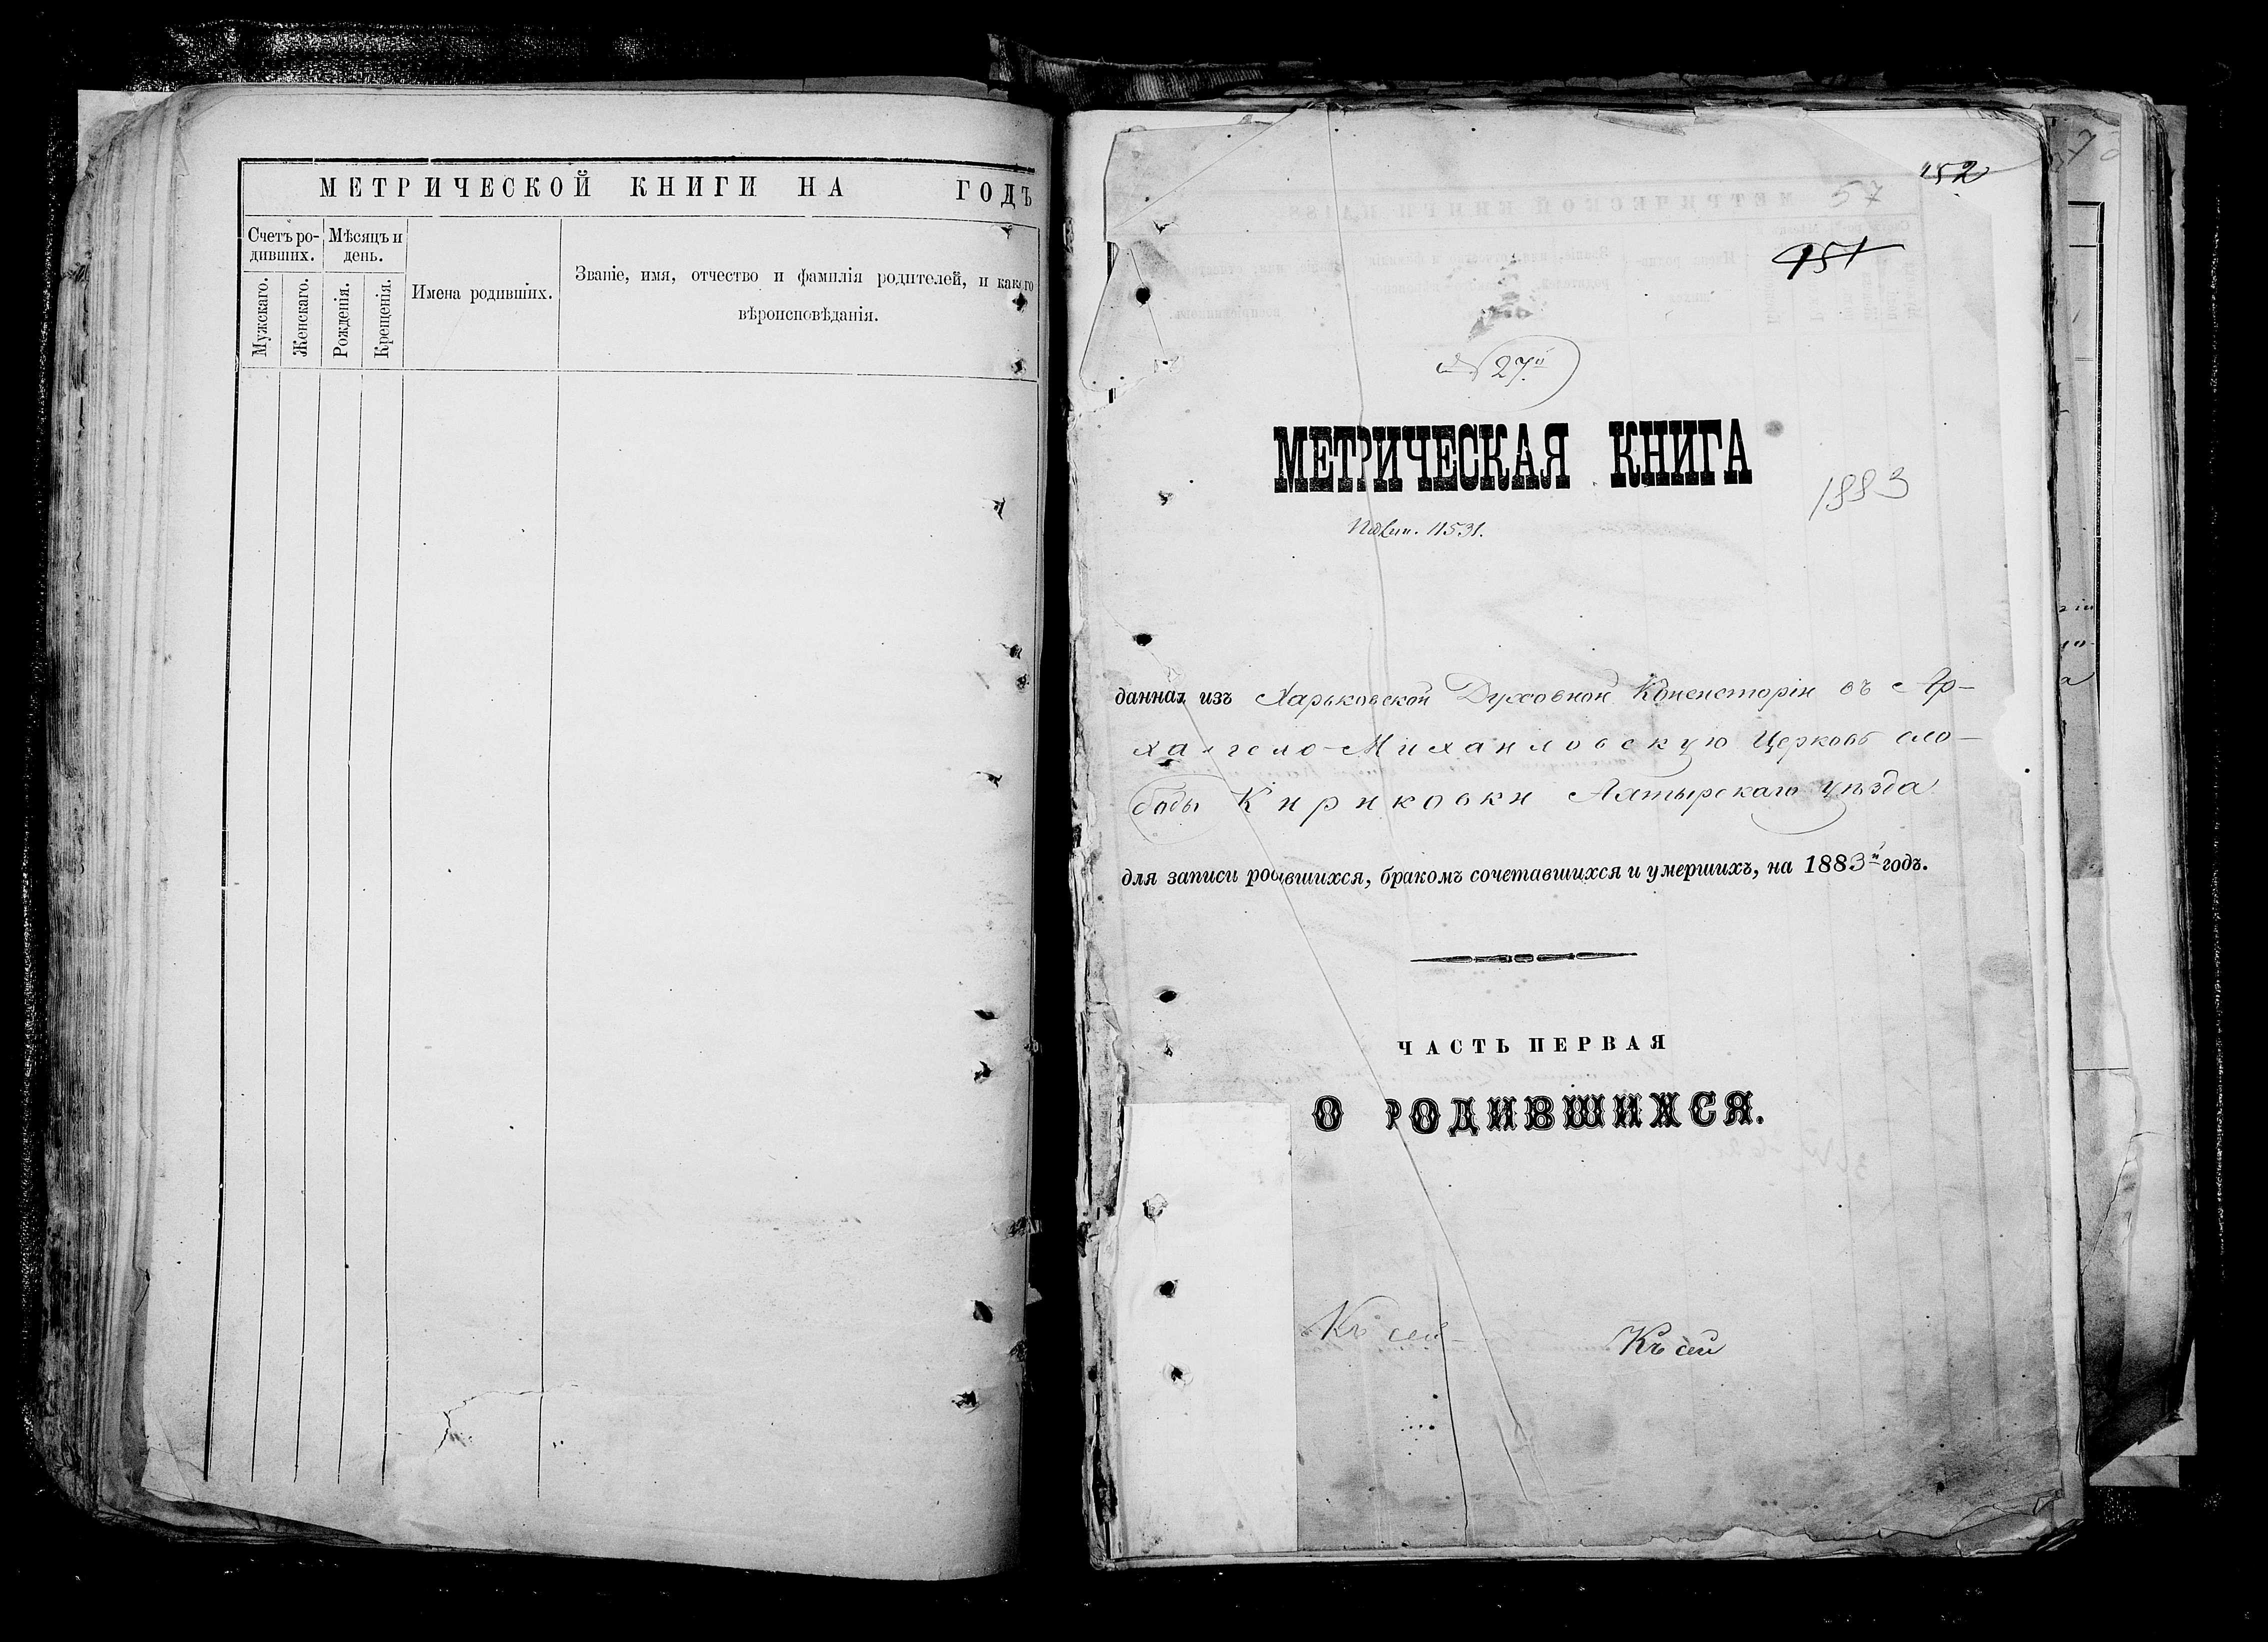 МЕТРИЧЕСКОЙ КНИГИ НА ГОДЪ
Счетъ ро-
дивших.
Мѣсяцъ и
день.
Мужскаго.
Женскаго.
Рожденія.
Крещенія.
Имена родивших.
Званіе, имя, отчество и фамилія родителей, и какого
вѣроисповѣданія.
152
57
151
№ 27й
МЕТРИЧЕСКАЯ КНИГА
1883
11531.
данная изъ Харьковской Духовной Консисторіи въ Ар-
хангело-Михайловскую Церковь сло-
боды Кириковки Ахтырскаго уѣзда
для записи родившихся, бракомъ сочетавшихся и умершихъ, на 1883й годъ.
ЧАСТЬ ПЕРВАЯ
О РОДИВШИХСЯ.
Къ сей
Къ сей